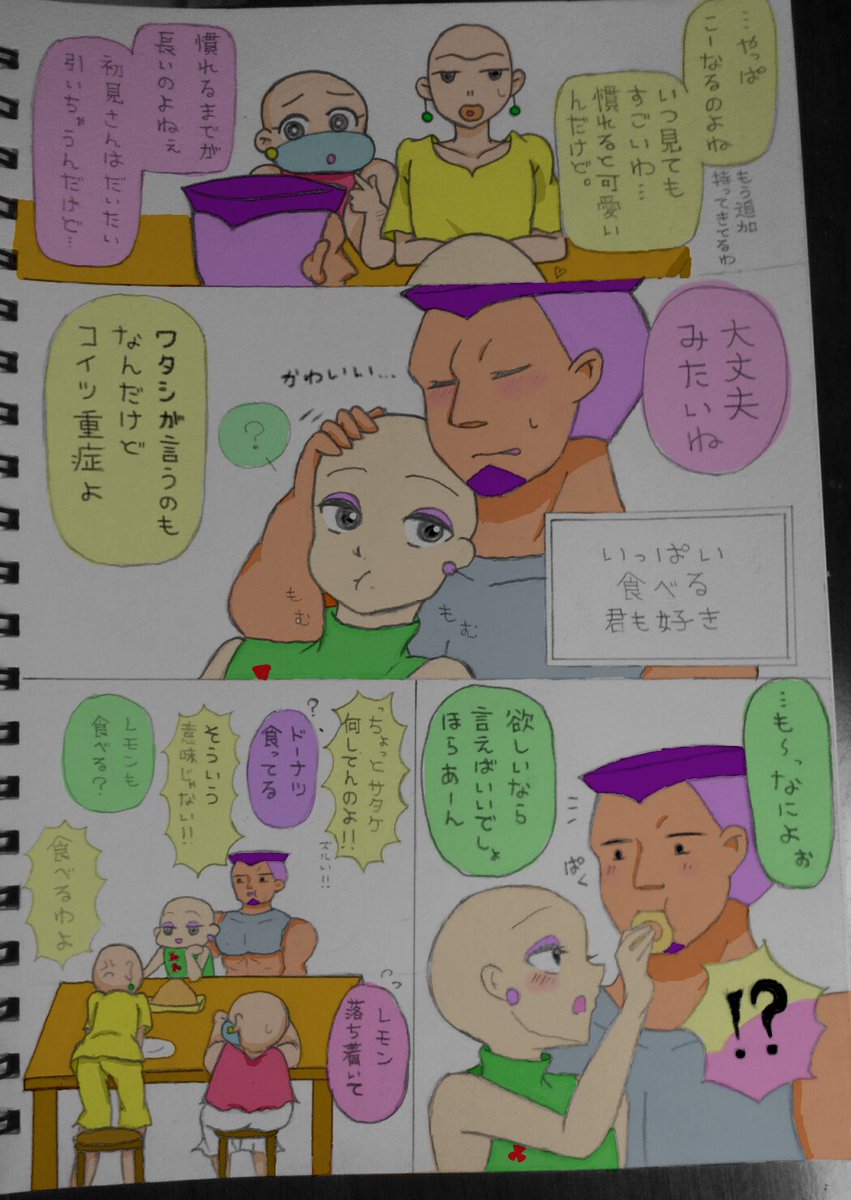 …やっぱ
こーなるのよね
もう追加
持ってきてるわ
いつ見ても
すごいわ…
慣れると可愛い
んだけど。
慣れるまでが
長いのよねぇ
初見さんはだいたい
引いちゃうんだけど…
大丈夫
みたいね
かわいい…
?
ワタシが言うのも
なんだけど
コイツ重症よ
もむ
もむ
いっぱい
食べる
君も好き
…も〜っなによぉ
欲しいなら
言えばいいでしょ
ほらあーん
ぱく
!?
っちょっとサタケ
何してんのよ!!
ズルい!!
?
ドーナツ
食ってる
そういう
意味じゃない!!
レモンも
食べる?
食べるわよ
レモン
落ち着いて